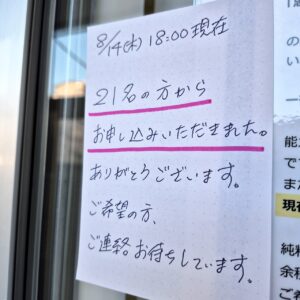 8/14(水) 18:00 現在
21名の方から
お申し込みいただきました。
ありがとうございます。
ご希望の方、
ご連絡お待ちしています。
の
一
能
で
現在
純粋
余税
ご希